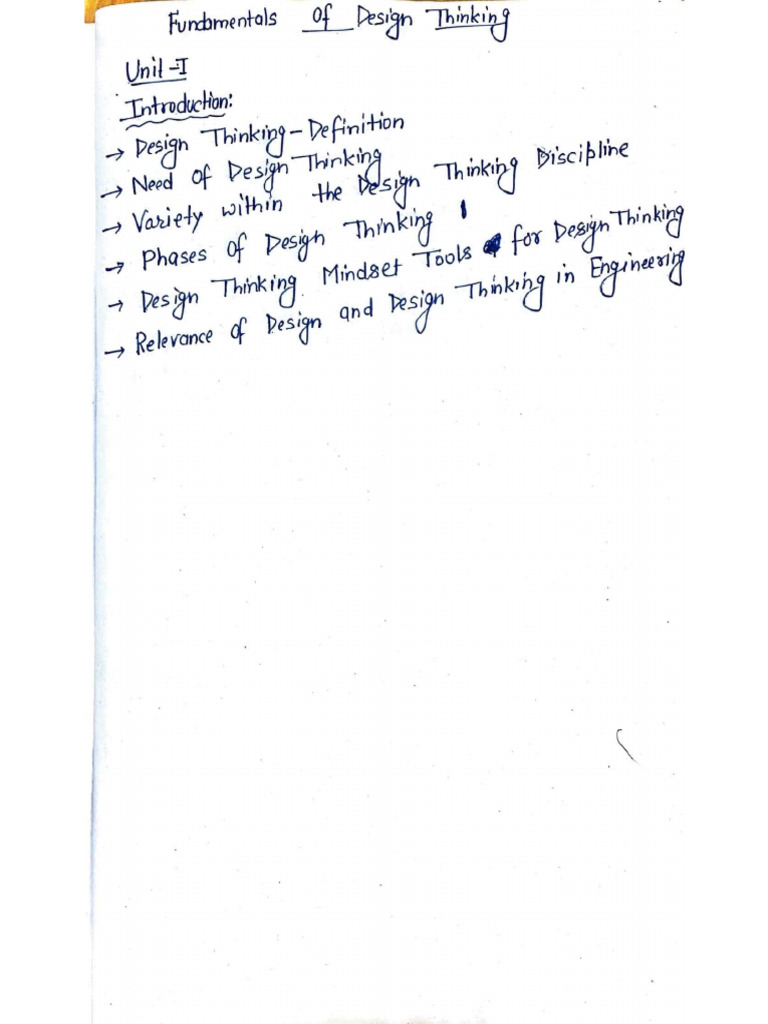 Fundamentals of Design Thinking
Unit-I
Introduction:
→ Design Thinking - Definition
→ Need of Design Thinking
→ Variety within the Design Thinking Discipline
→ Phases of Design Thinking
→ Design Thinking Mindset Tools for Design Thinking
→ Relevance of Design and Design Thinking in Engineering